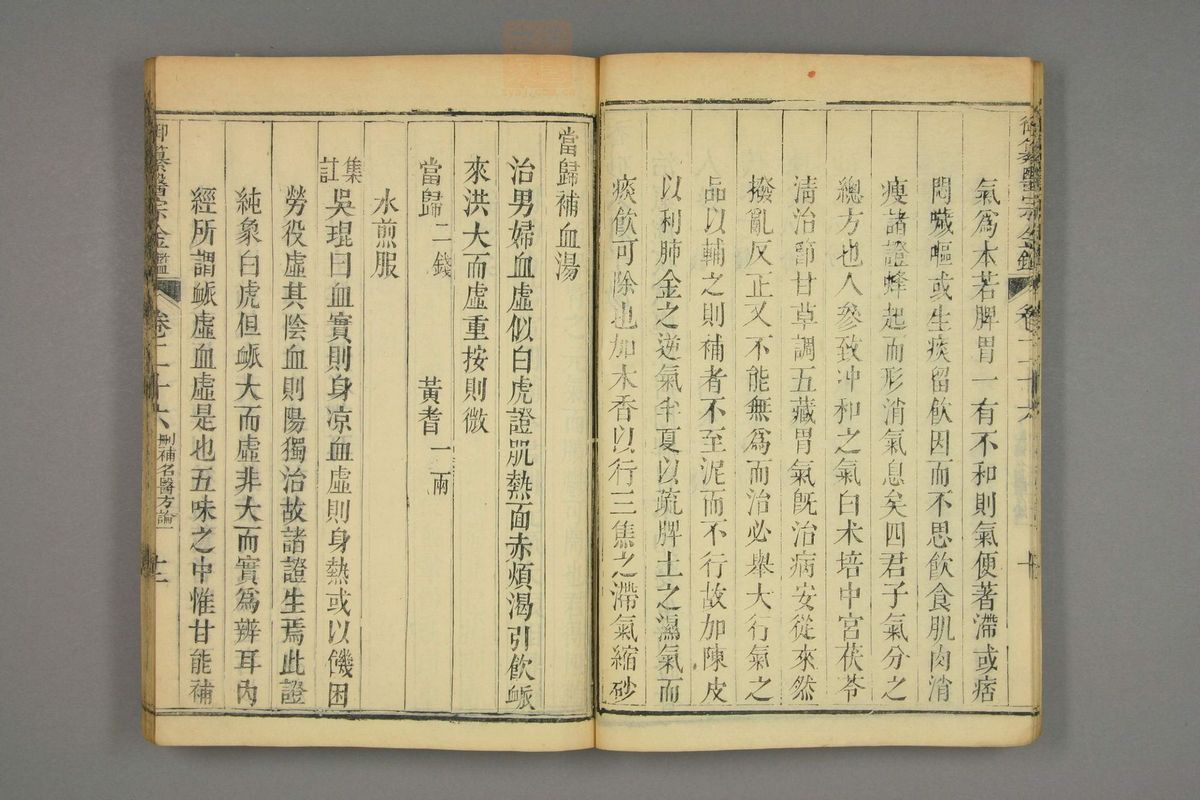 氣爲本若脾胃一有不和則氣便著滯或痞
悶噦嘔或生痰留飲因而不思飲食肌肉消
瘦諸證蜂起而形消氣息矣四君子氣分之
總方也人參致冲和之氣白术培中宮茯苓
清治節甘草調五藏胃氣旣治病安從來然
撥亂反正又不能無爲而治必舉大行氣之
品以輔之則補者不至泥而不行故加陳皮
以利肺金之逆氣半夏以疏脾土之濕氣而
痰飲可除也加木香以行三焦之滯氣縮砂
當歸補血湯
治男婦血虛似白虎證肌熱面赤煩渴引飲脈
來洪大而虛重按則微
當歸二錢 黃耆一兩
水煎服
集註吳琨曰血實則身凉血虛則身熱或以饑困
勞役虛其陰血則陽獨治故諸證生焉此證
純象白虎但脈大而虛非大而實爲辨耳內
經所謂脈虛血虛是也五味之中惟甘能補
御纂醫宗金鑑 卷二十六 刪補名醫方論